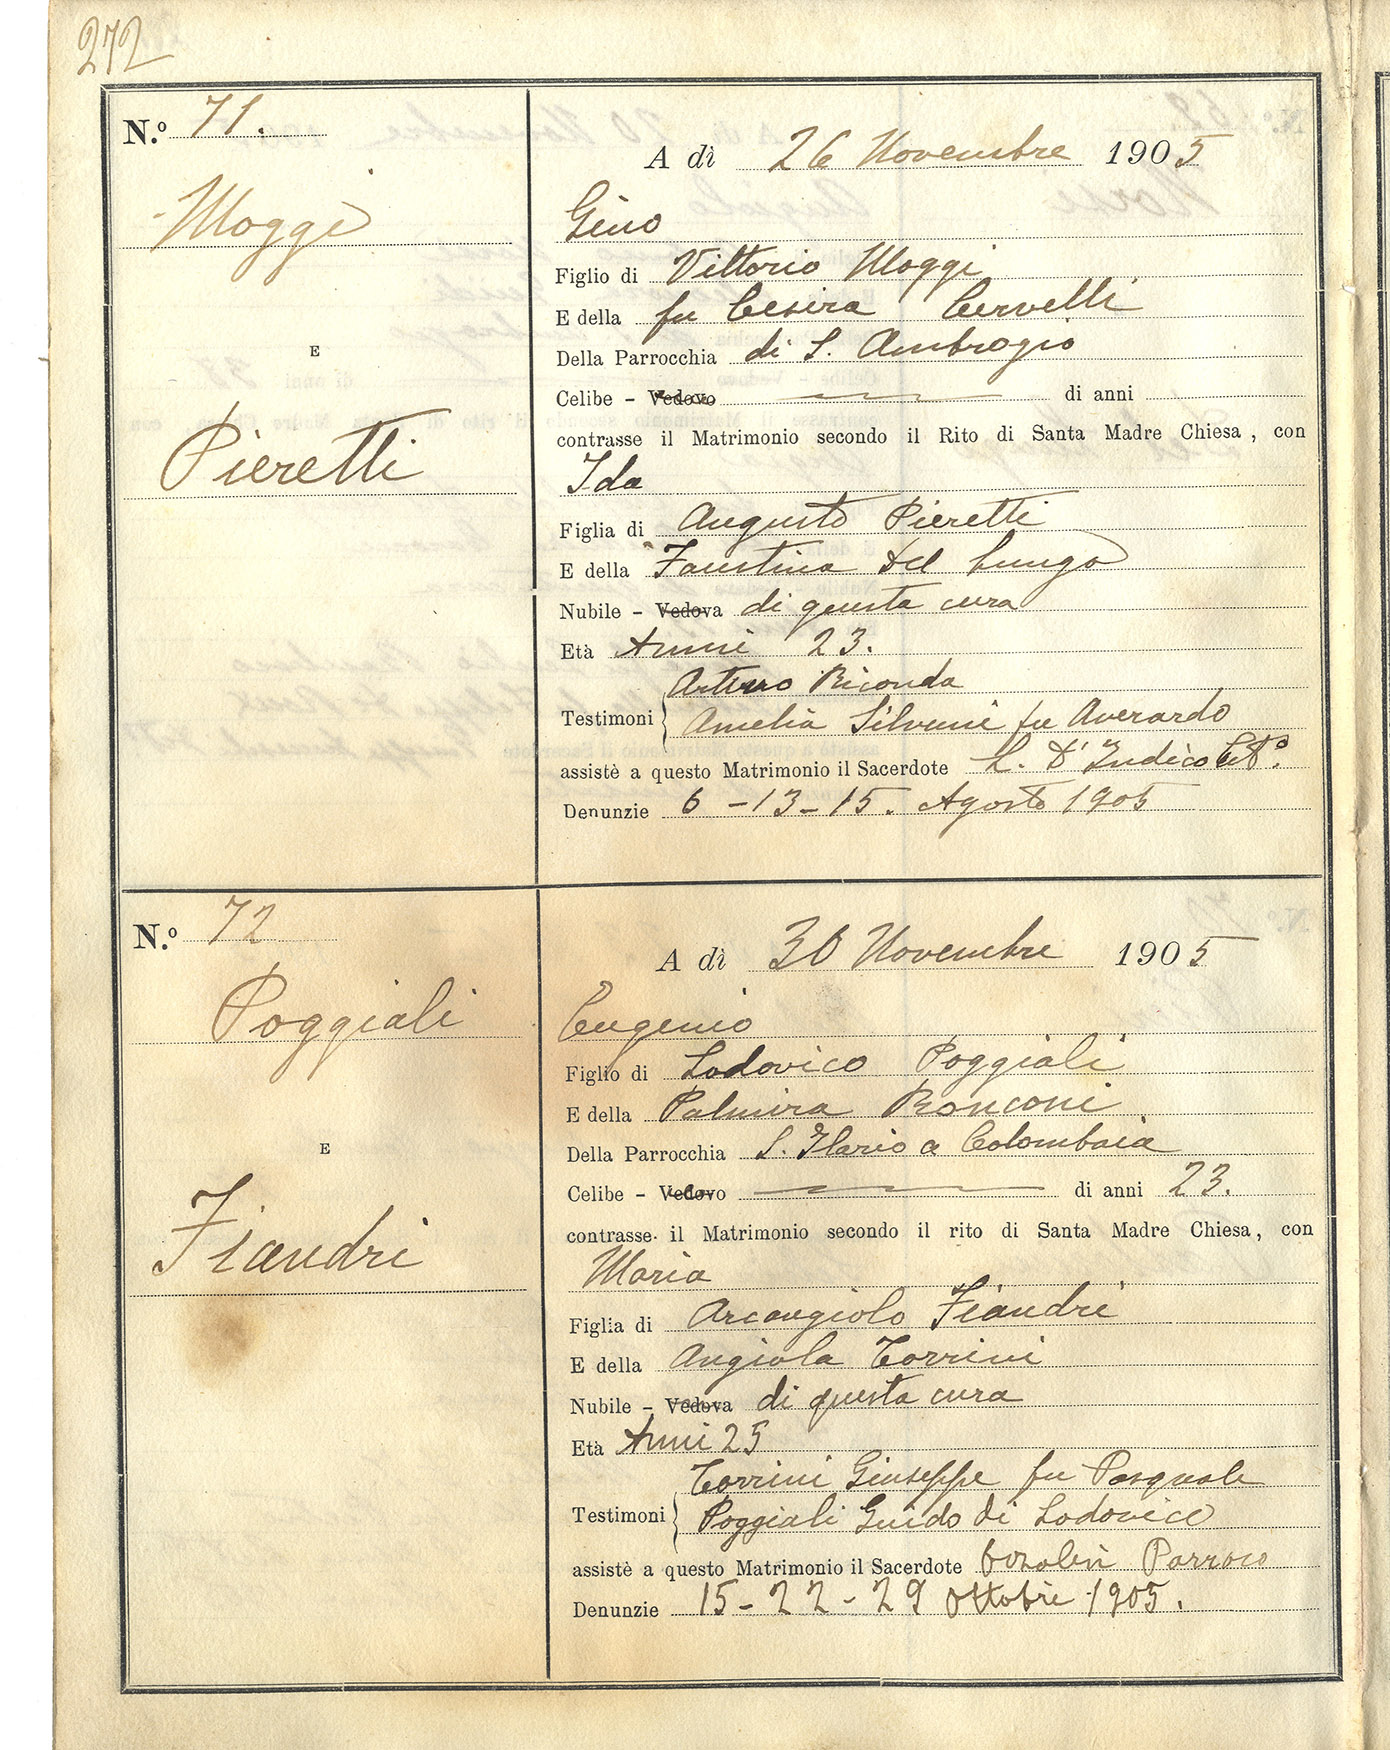 272
N.º 71.
Moggi
E
Pieretti
A dì 26 Novembre 1905
Gino
Figlio di Vittorio Moggi
E della fu Cesira Cervelli
Della Parrocchia di S. Ambrogio
Celibe - Vedovo di anni
contrasse il Matrimonio secondo il Rito di Santa Madre Chiesa, con
Ida
Figlia di Augusto Pieretti
E della Faustina Del Lungo
Nubile - Vedova di questa cura
Età Anni 23.
Arturo Riconda
Testimoni Amelia Silvani fu Averardo
assistè a questo Matrimonio il Sacerdote L. D'Indico
Denunzie 6 - 13 - 15. Agosto 1905
N.º 72
Poggiali
E
Fiandri
A dì 30 Novembre 1905
Eugenio
Figlio di Lodovico Poggiali
E della Palmira Ronconi
Della Parrocchia S. Ilario a Colombaia
Celibe - Vedovo di anni 23.
contrasse il Matrimonio secondo il rito di Santa Madre Chiesa, con
Maria
Figlia di Arcangiolo Fiandri
E della Angiola Torrini
Nubile - Vedova di questa cura
Età Anni 25
Torrini Giuseppe fu Pasquale
Testimoni Poggiali Guido di Lodovico
assistè a questo Matrimonio il Sacerdote Parroco
Denunzie 15 - 22 - 29 Ottobre 1905.